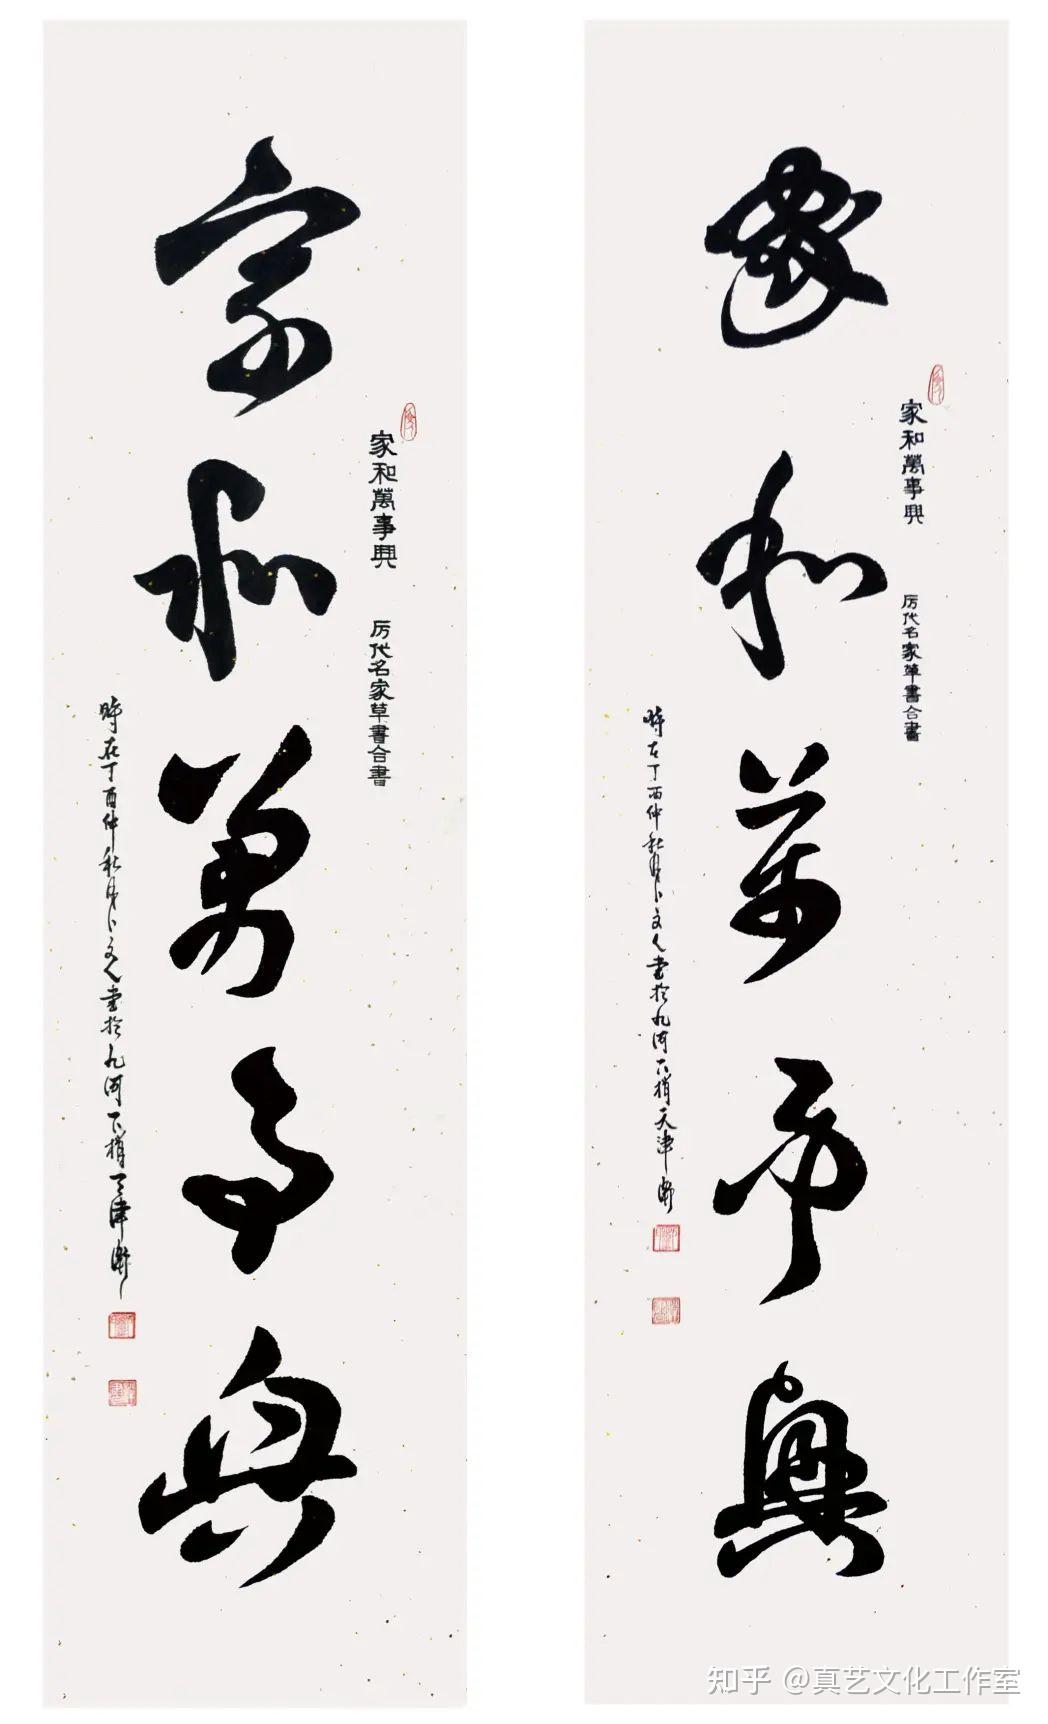 家和萬事興
家和萬事興
厉代名家草書合書
時在丁酉仲秋月卜文人書於九河下梢天津衛
家和萬事興
家和萬事興
厉代名家草書合書
時在丁酉仲秋月卜文人書於九河下梢天津衛
知乎 @真艺文化工作室